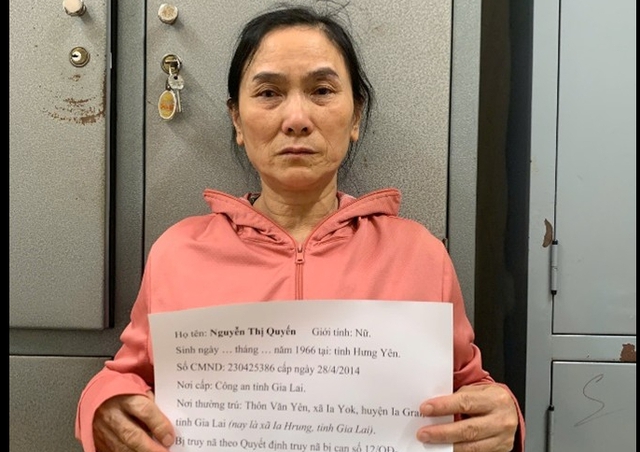 Họ tên: Nguyễn Thị Quyến Giới tính: Nữ.
Sinh ngày … tháng … năm 1966 tại: tỉnh Hưng Yên.
Số CMND: 230425386 cấp ngày 28/4/2014
Nơi cấp: Công an tỉnh Gia Lai.
Nơi thường trú: Thôn Văn Yên, xã Ia Yok, huyện Ia Gra
tỉnh Gia Lai (nay là xã Ia Hrung, tỉnh Gia Lai).
Bị truy nã theo Quyết định truy nã bị can số 12/QĐ